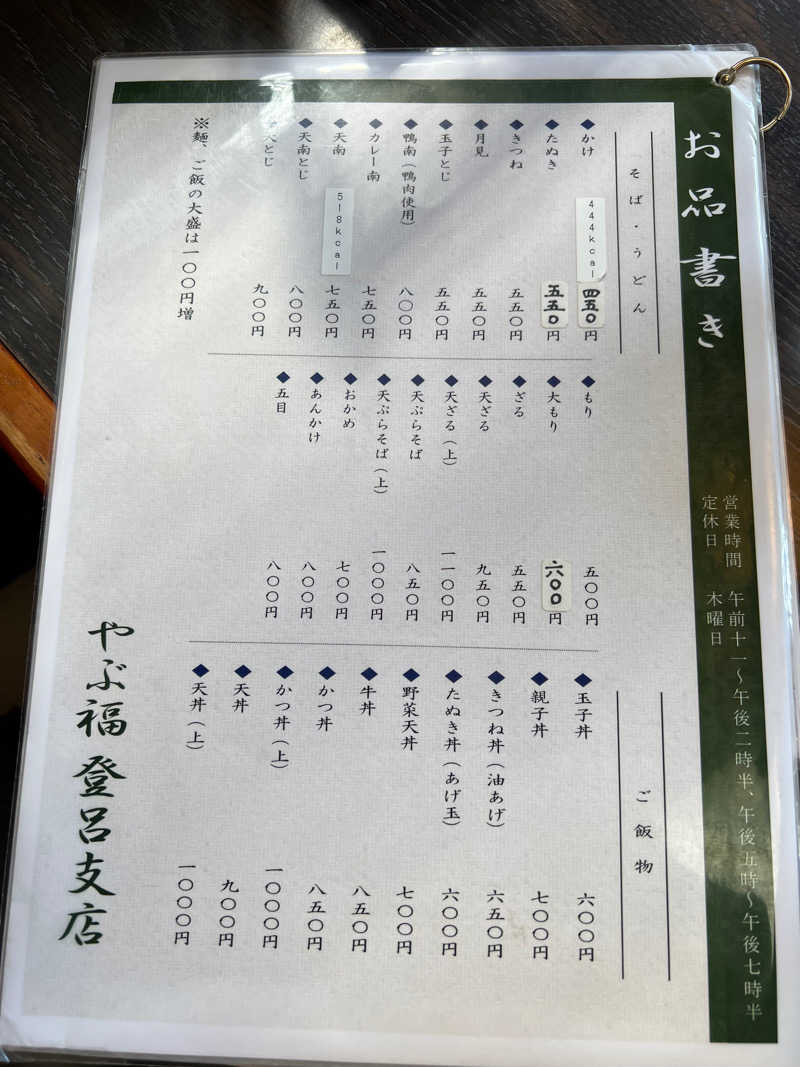 お品書き
営業時間　午前十一〜午後二時半、午後五時〜午後七時半
定休日　木曜日
そば・うどん
◆かけ 444kcal 四五〇円
◆たぬき 五五〇円
◆きつね 五五〇円
◆月見 五五〇円
◆玉子とじ 五五〇円
◆鴨南（鴨肉使用） 八〇〇円
◆カレー南 七五〇円
◆天南 518kcal 七五〇円
◆天南とじ 八〇〇円
とじ 九〇〇円
※麺、ご飯の大盛は一〇〇円増
◆もり 五〇〇円
◆大もり 六〇〇円
◆ざる 五五〇円
◆天ざる 九五〇円
◆天ざる（上） 一一〇〇円
◆天ぷらそば 八五〇円
◆天ぷらそば（上） 一〇〇〇円
◆おかめ 七〇〇円
◆あんかけ 八〇〇円
◆五目 八〇〇円
ご飯物
◆玉子丼 六〇〇円
◆親子丼 七〇〇円
◆きつね丼（油あげ） 六五〇円
◆たぬき丼（あげ玉） 六〇〇円
◆野菜天丼 七〇〇円
◆牛丼 八五〇円
◆かつ丼 八五〇円
◆かつ丼（上） 一〇〇〇円
◆天丼 九〇〇円
◆天丼（上） 一〇〇〇円
やぶ福 登呂支店